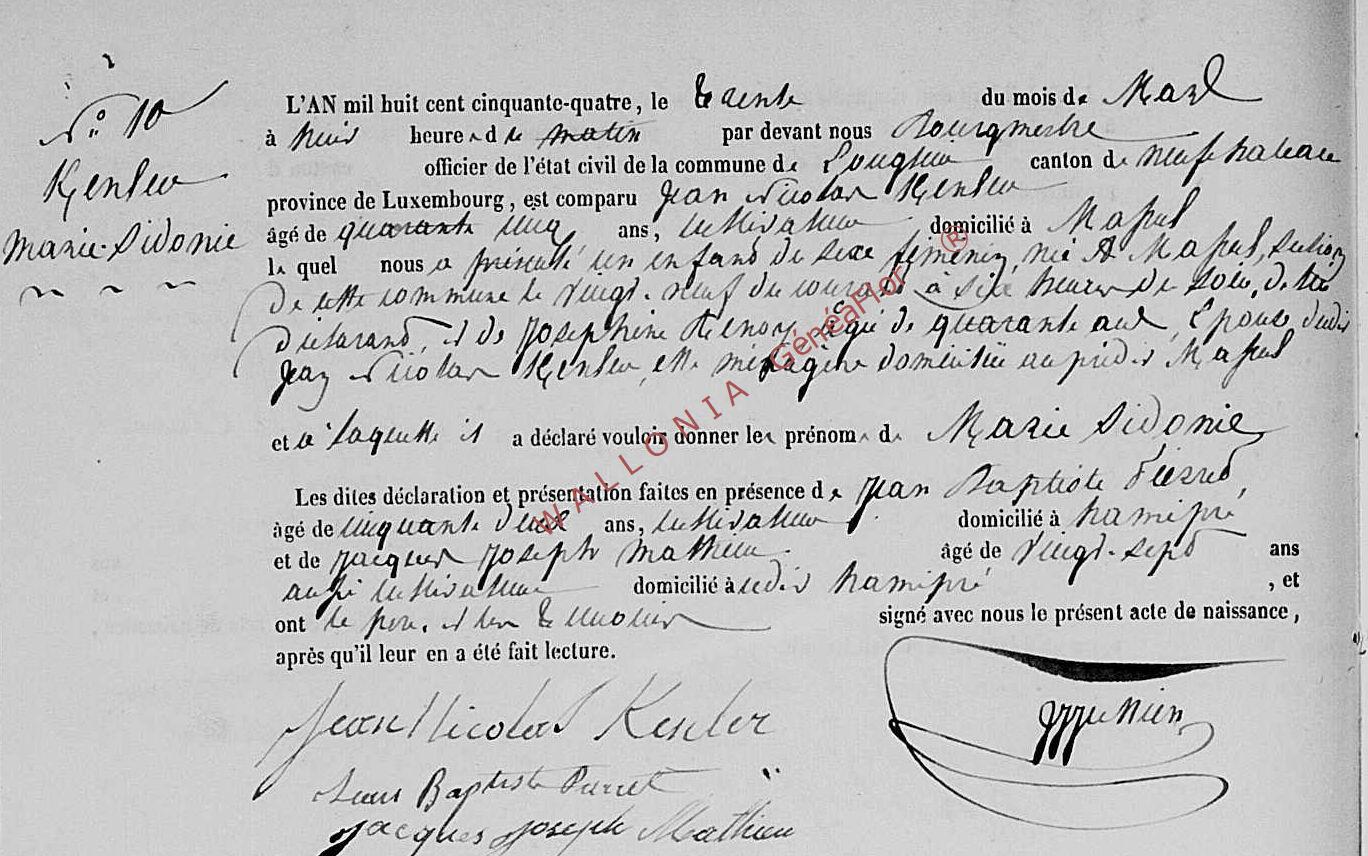 N° 10
Kensler
Marie-Sidonie
L'AN mil huit cent cinquante-quatre, le trente du mois de Mars
à huit heures de matin par devant nous Bourgmestre
officier de l'état civil de la commune de Longlier canton de neufchateau
province de Luxembourg, est comparu Jean Nicolas Kensler
âgé de quarante cinq ans, cultivateur domicilié à Massul
le quel nous a présenté un enfant de sexe féminin, née à Massul, section
de cette commune le vingt-neuf du courant à six heures du soir, de lui
déclarant, et de Josephine agée de quarante ans, Epouse dudit
Jean Nicolas Kensler, elle ménagère domiciliée au prédit Massul
et à laquelle il a déclaré vouloir donner les prénoms de Marie Sidonie
Les dites déclaration et présentation faites en présence de Jean Baptiste Pierret,
âgé de cinquante deux ans, cultivateur domicilié à hamipré
et de Jacques Joseph Mathieu âgé de vingt-sept ans
aussi cultivateur domicilié à hamipré, et
ont le père et les témoins signé avec nous le présent acte de naissance,
après qu'il leur en a été fait lecture.
Jean Nicolas Kensler
Jean Baptiste Pierret
Jacques Joseph Mathieu
WALLONIA GénéaFlor ®